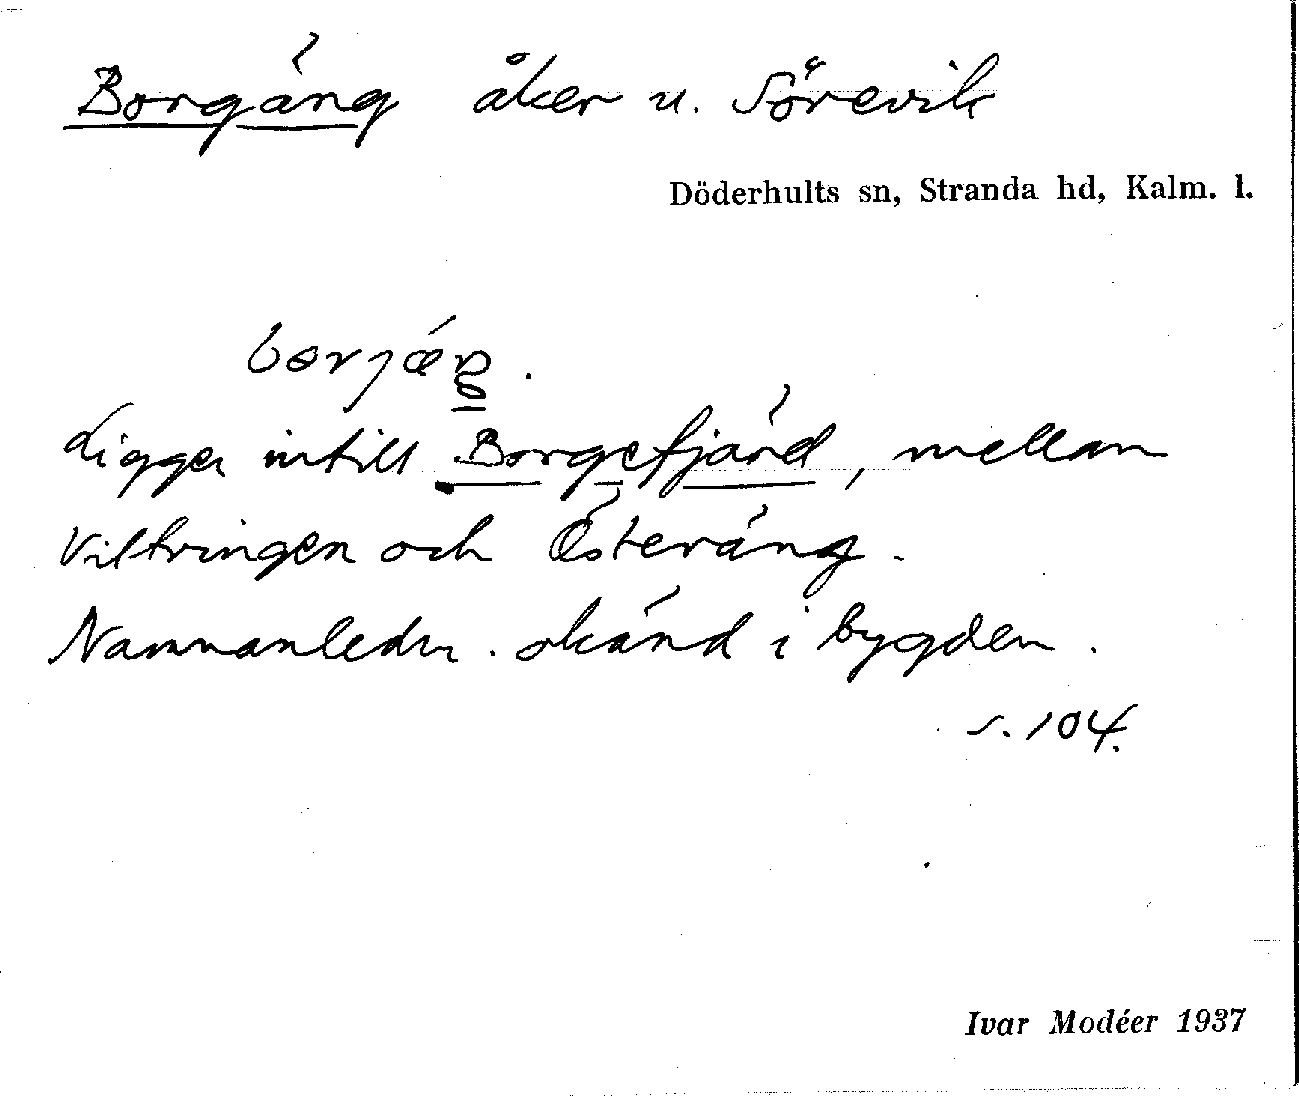 Borgäng åker u. Sörevik
Döderhults sn, Stranda hd, Kalm. l.
Ligger intill Borgefjärd, mellan
Viltringen och Österäng.
Namnanledn. okänd i bygden.
s. 104.
Ivar Modéer 1937